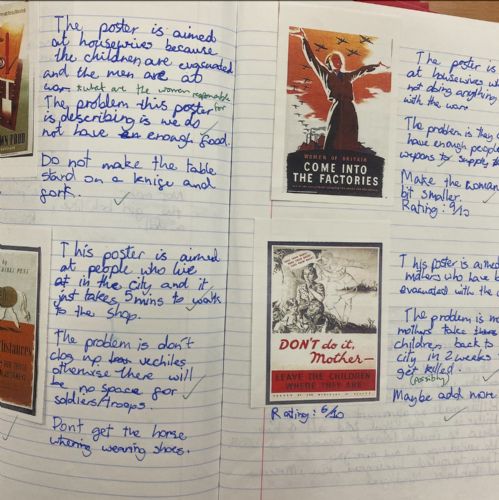 The poster is aimed
at housewives because
the children are evacuated
and the men are at
war. * what are the women responsible for
The problem this poster
is describing is we do
not have enough food.
Do not make the table
stand on a knife and
fork.
This poster is aimed
at people who live
in the city and it
just takes 5 mins to walk
to the shop.
The problem is don't
clog up vechiles
otherwise there will
be no space for
soldiers/troops.
Dont get the horse
wearing shoes.
WOMEN OF BRITAIN
COME INTO
THE FACTORIES
The poster is
at housewives
not doing anything
with the war.
The problem is they
have enough people
wepons to supply
Make the woman
bit smaller.
Rating: 9/10
DON'T do it,
Mother—
LEAVE THE CHILDREN
WHERE THEY ARE
Rating: 6/10
This poster is aimed
who have
evacuated with the
The problem is
mothers take
children back to
city in 2 weeks
get killed.
(possibly)
Maybe add more